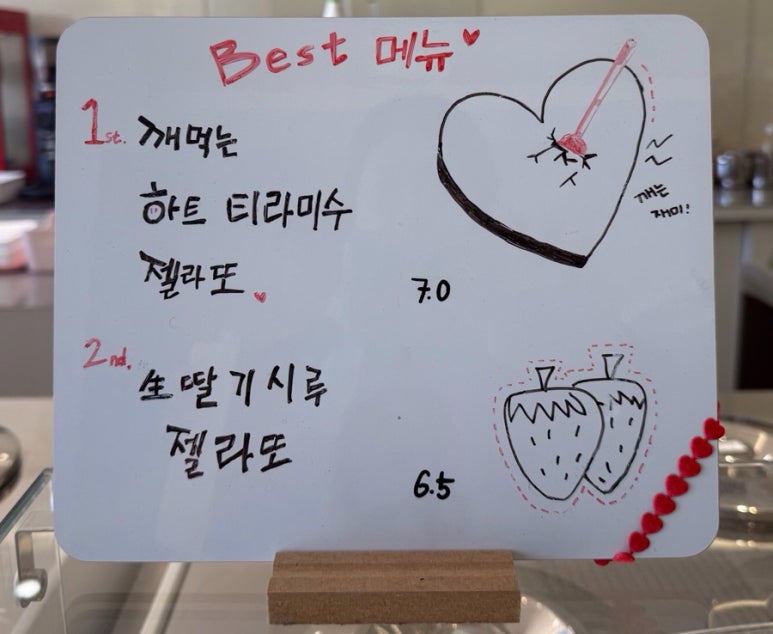 Best 메뉴
1st. 깨먹는
하트 티라미수
젤라또
7.0
깨는
재미!
2nd. 生딸기시루
젤라또
6.5